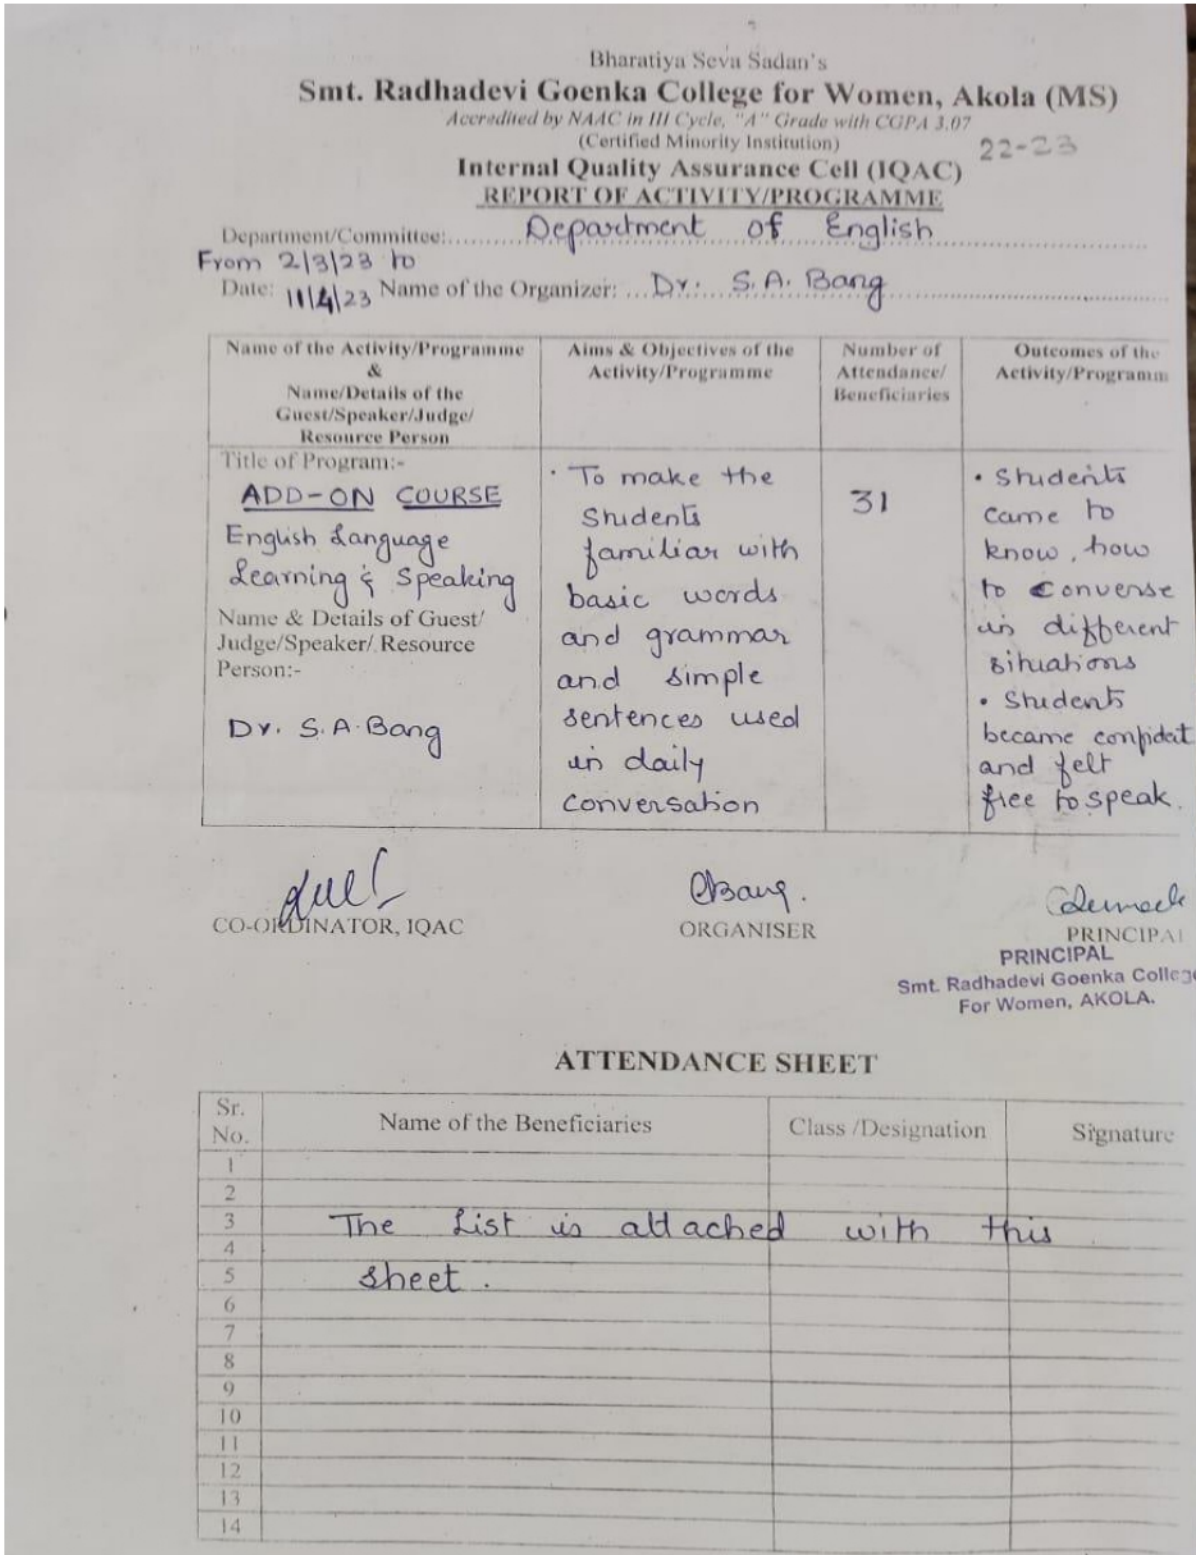 Bharatiya Seva Sadan's
Smt. Radhadevi Goenka College for Women, Akola (MS)
Accredited by NAAC in III Cycle, "A" Grade with CGPA 3.07
(Certified Minority Institution)
22-23
Internal Quality Assurance Cell (IQAC)
REPORT OF ACTIVITY/PROGRAMME
Department/Committee:.......... Department of English
From 2/3/23 to
Date: 11/4/23 Name of the Organizer: ... Dr. S.A. Bang
Name of the Activity/Programme
&
Name/Details of the
Guest/Speaker/Judge/
Resource Person
Aims & Objectives of the
Activity/Programme
Number of
Attendance/
Beneficiaries
Outcomes of the
Activity/Programm
Title of Program:-
ADD-ON COURSE
English Language
Learning & Speaking
Name & Details of Guest/
Judge/Speaker/ Resource
Person:-
Dr. S.A. Bang
• To make the
Students
familiar with
basic words
and grammar
and simple
sentences used
in daily
conversation
31
• Students
came to
know, how
to converse
in different
situations
• Students
became confidet
and felt
free to speak.
CO-ORDINATOR, IQAC
Bang.
ORGANISER
PRINCIPAL
PRINCIPAL
Smt. Radhadevi Goenka College
For Women, AKOLA.
ATTENDANCE SHEET
Sr.
No.
Name of the Beneficiaries
Class /Designation
Signature
1
2
3 The List is attached with this
4
5 sheet.
6
7
8
9
10
11
12
13
14